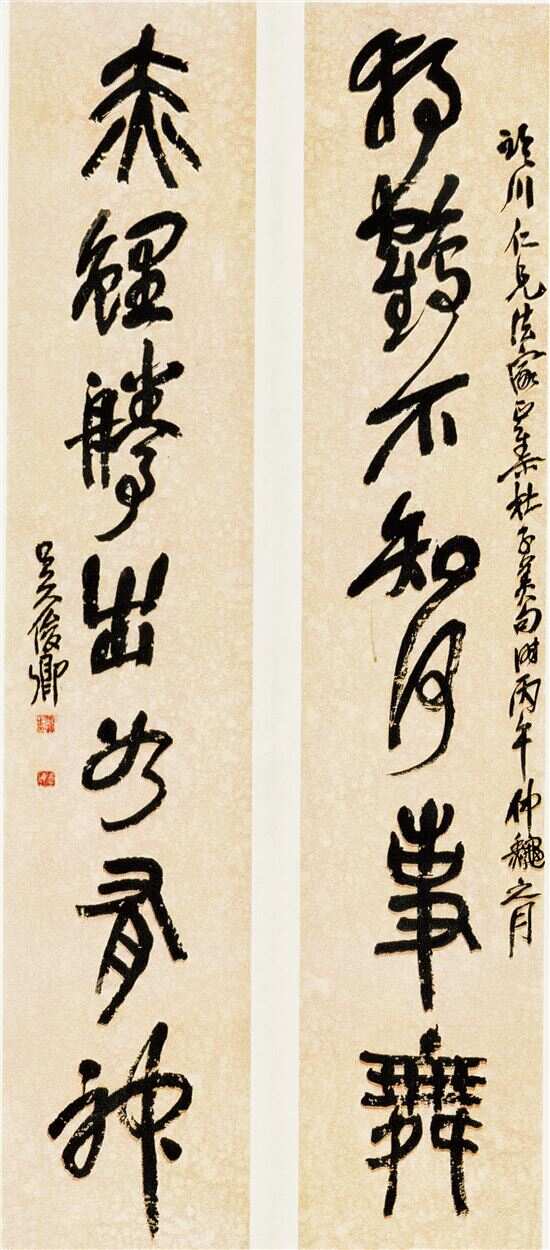 川仁兄法家正集杜子美句時丙午仲龝之月
獨鶴不知何事舞
赤鯉騰出如有神
吳俊卿